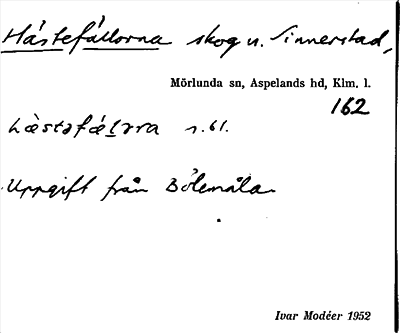 Hästefällorna skog u. Sinnerstad,
Mörlunda sn, Aspelands hd, Klm. l.
162
hæ̀stəfǽḷɷra s. 61.
Uppgift från Bölemåla
Ivar Modéer 1952